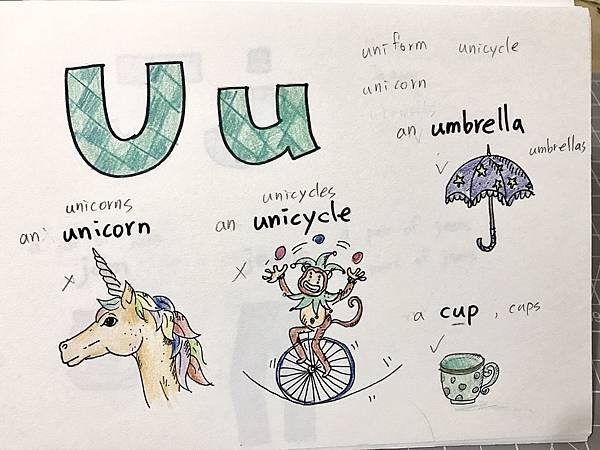 Uu
uniform unicycle
unicorn
an umbrella
umbrellas
unicorns
an unicorn
unicycles
an unicycle
a cup, cups